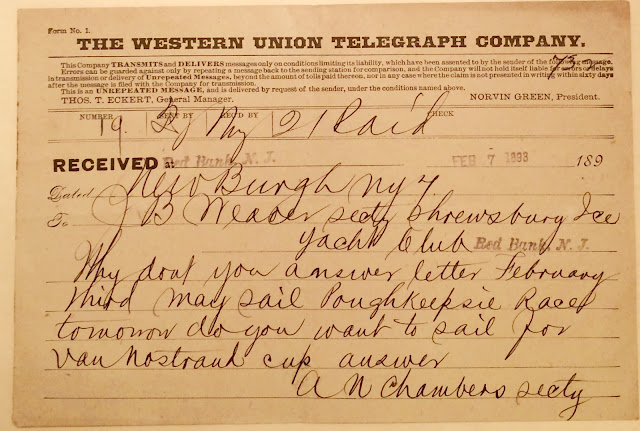 Form No. 1.
THE WESTERN UNION TELEGRAPH COMPANY.
This Company TRANSMITS and DELIVERS messages only on conditions limiting its liability, which have been assented to by the sender of the following message.
Errors can be guarded against only by repeating a message back to the sending station for comparison, and the Company will not hold itself liable for errors or delays
in transmission or delivery of Unrepeated Messages, beyond the amount of tolls paid thereon, nor in any case where the claim is not presented in writing within sixty days
after the message is filed with the Company for transmission.
This is an UNREPEATED MESSAGE, and is delivered by request of the sender, under the conditions named above.
THOS. T. ECKERT, General Manager. NORVIN GREEN, President.
NUMBER SENT BY REC'D BY CHECK
19 My 21 Paid
RECEIVED at Red Bank, N. J. FEB 7 1893 189
Dated NewBurgh NY 7
To J B Weaver secty Shrewsbury Ice
Yacht Club Red Bank, N. J.
Why dont you answer letter February
third may sail Poughkeepsie Races
tomorrow do you want to sail for
Van Nostrand cup answer
A N Chambers secty